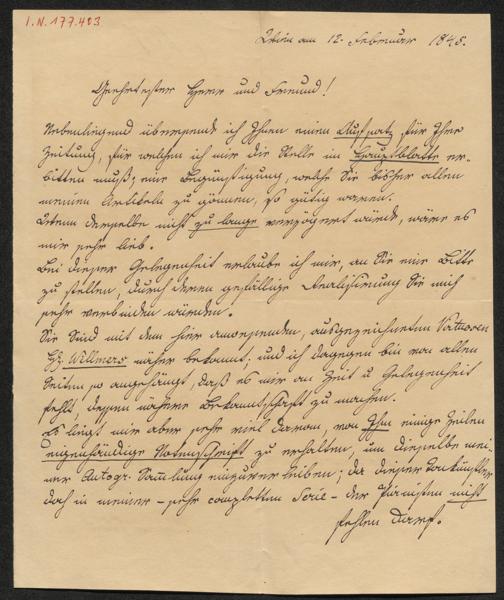 I.N. 177.403
Wien am 12. Februar 1845.
Geehrtester Herr und Freund!
Nebenliegend übersende ich Ihnen einen Aufsatz für Ihre
Zeitung, für welchen ich mir die Stelle im Hauptblatte er-
bitten muß; eine Begünstigung, welche Sie bisher allen
meinen Artikeln zu gönnen, so gütig waren.
Wenn derselbe nicht zu lange verzögert würde, wäre es
mir sehr lieb.
Bei dieser Gelegenheit erlaube ich mir, an Sie eine Bitte
zu stellen, durch deren gefällige Realisirung Sie mich
sehr verbinden würden.
Sie sind mit dem hier anwesenden, ausgezeichneten Virtuosen
H. Willmers näher bekannt; und ich dagegen bin von allen
Seiten so angehängt, daß es mir an Zeit u Gelegenheit
fehlt, dessen nähere Bekanntschaft zu machen.
Es liegt mir aber sehr viel daran, von Ihm einige Zeilen
eigenhändige Notenschrift zu erhalten, um dieselbe mei-
ner Autogr. Sammlung einzuverleiben; da dieser Tonkünstler
doch in meiner – sehr completten Serie – der Pianisten nicht
fehlen darf.